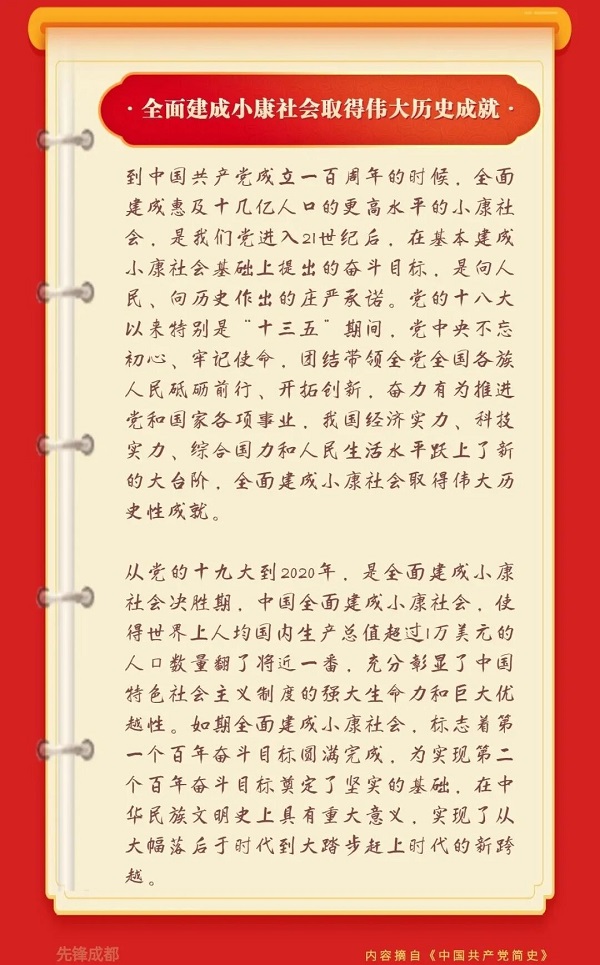 ·全面建成小康社会取得伟大历史成就·
到中国共产党成立一百周年的时候，全面
建成惠及十几亿人口的更高水平的小康社
会，是我们党进入21世纪后，在基本建成
小康社会基础上提出的奋斗目标，是向人
民、向历史作出的庄严承诺。党的十八大
以来特别是“十三五”期间，党中央不忘
初心、牢记使命，团结带领全党全国各族
人民砥砺前行、开拓创新，奋力有为推进
党和国家各项事业，我国经济实力、科技
实力、综合国力和人民生活水平跃上了新
的大台阶，全面建成小康社会取得伟大历
史性成就。
从党的十九大到2020年，是全面建成小康
社会决胜期，中国全面建成小康社会，使
得世界上人均国内生产总值超过1万美元的
人口数量翻了将近一番，充分彰显了中国
特色社会主义制度的强大生命力和巨大优
越性。如期全面建成小康社会，标志着第
一个百年奋斗目标圆满完成，为实现第二
个百年奋斗目标奠定了坚实的基础，在中
华民族文明史上具有重大意义，实现了从
大幅落后于时代到大踏步赶上时代的新跨
越。
先锋成都
内容摘自《中国共产党简史》